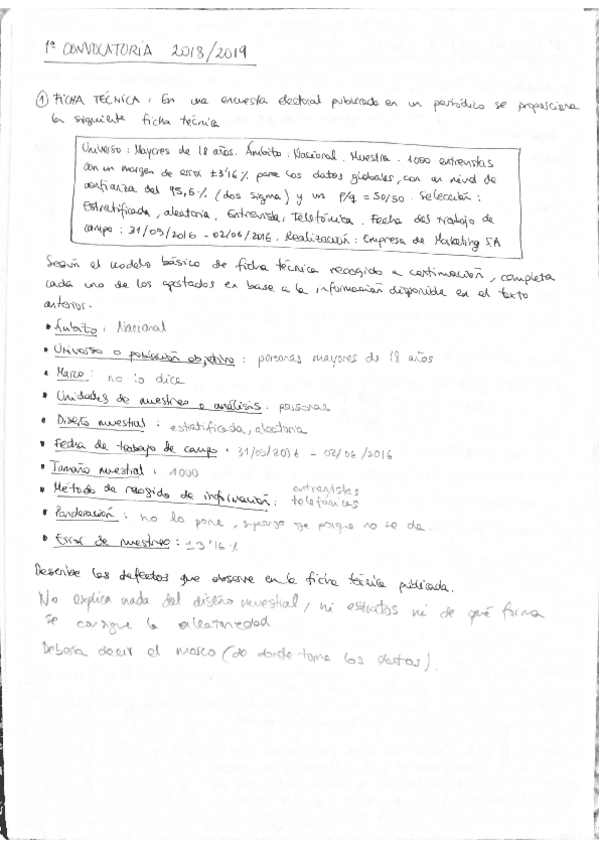 1ª CONVOCATORIA 2018/2019
① FICHA TÉCNICA: En una encuesta electoral publicada en un periódico se proporciona
la siguiente ficha técnica
Universo: Mayores de 18 años. Ámbito: Nacional. Muestra. 1000 entrevistas
con un margen de error ±3'16% para los datos globales, con un nivel de
confianza del 95,5% (dos sigma) y un P/q = 50/50. Selección:
Estratificada, aleatoria. Entrevista: Telefónica. Fecha del trabajo de
campo: 31/05/2016 - 02/06/2016. Realización: Empresa de Marketing SA
Según el modelo básico de ficha técnica recogido a continuación, completa
cada uno de los apartados en base a la información disponible en el texto
anterior.
• Ámbito: Nacional
• Universo o población objetivo: personas mayores de 18 años
• Marco: no lo dice
• Unidades de muestreo e análisis: personas
• Diseño muestral: estratificada, aleatoria
• Fecha de trabajo de campo: 31/05/2016 - 02/06/2016
• Tamaño muestral: 1000
• Método de recogida de información: entrevistas
telefónicas
• Ponderación: no lo pone, supongo que porque no se da.
• Error de muestreo: ±3'16%
Describe los defectos que observe en la ficha técnica publicada.
No explica nada del diseño muestral, ni estratos ni de qué forma
se consigue la aleatoriedad.
Debería decir el marco (de donde toma los datos).